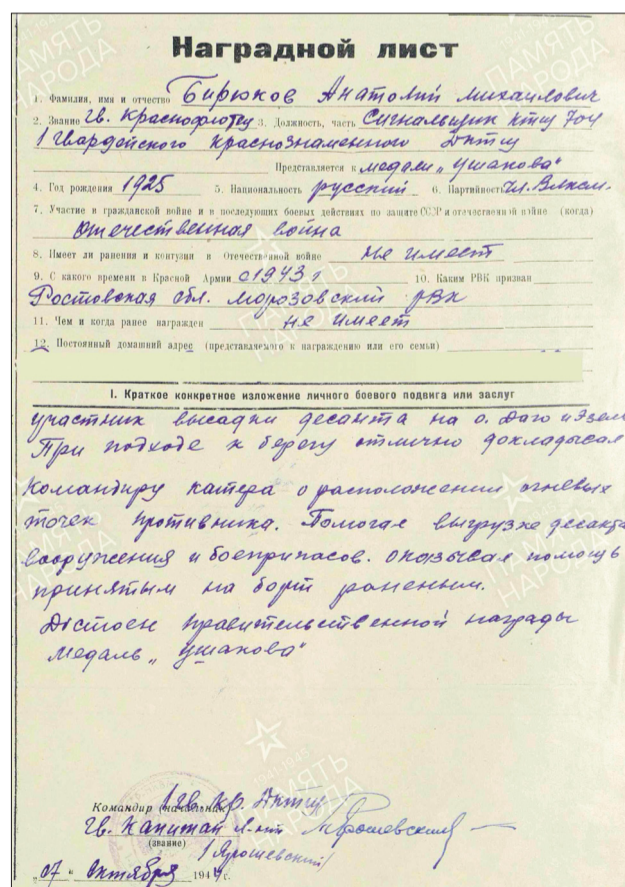 Наградной лист
1. Фамилия, имя и отчество Бирюков Анатолий Михайлович
2. Звание Гв. Краснофлотец 3. Должность, часть Сигнальщик ктщ 704
1 Гвардейского Краснознаменного Дктщ
Представляется к медали „Ушакова“
4. Год рождения 1925 5. Национальность русский 6. Партийность Чл. Влксм.
7. Участие в гражданской войне и в последующих боевых действиях по защите СССР и отечественной войне (когда)
Отечественная война
8. Имеет ли ранения и контузии в Отечественной войне Не имеет
9. С какого времени в Красной Армии с 1943 г 10. Каким РВК призван
Ростовская обл. Морозовский РВК
11. Чем и когда ранее награжден не имеет
12. Постоянный домашний адрес (представляемого к награждению или его семьи)
I. Краткое конкретное изложение личного боевого подвига или заслуг
участник высадки десанта на о. Даго и Эзель
При подходе к берегу отлично докладывал
Командиру катера о расположении огневых
точек противника. Помогал выгрузке десанта
вооружения и боеприпасов. оказывал помощь
принятым на борт раненым.
Достоен правительственной награды
медаль „Ушакова“
Командир (начальник) 1 Гв. Кр. Дктщ
Гв. Капитан л-нт
(звание)
/Ярошевский/
„07“ Октября 1944 г.
ПАМЯТЬ НАРОДА
1941-1945